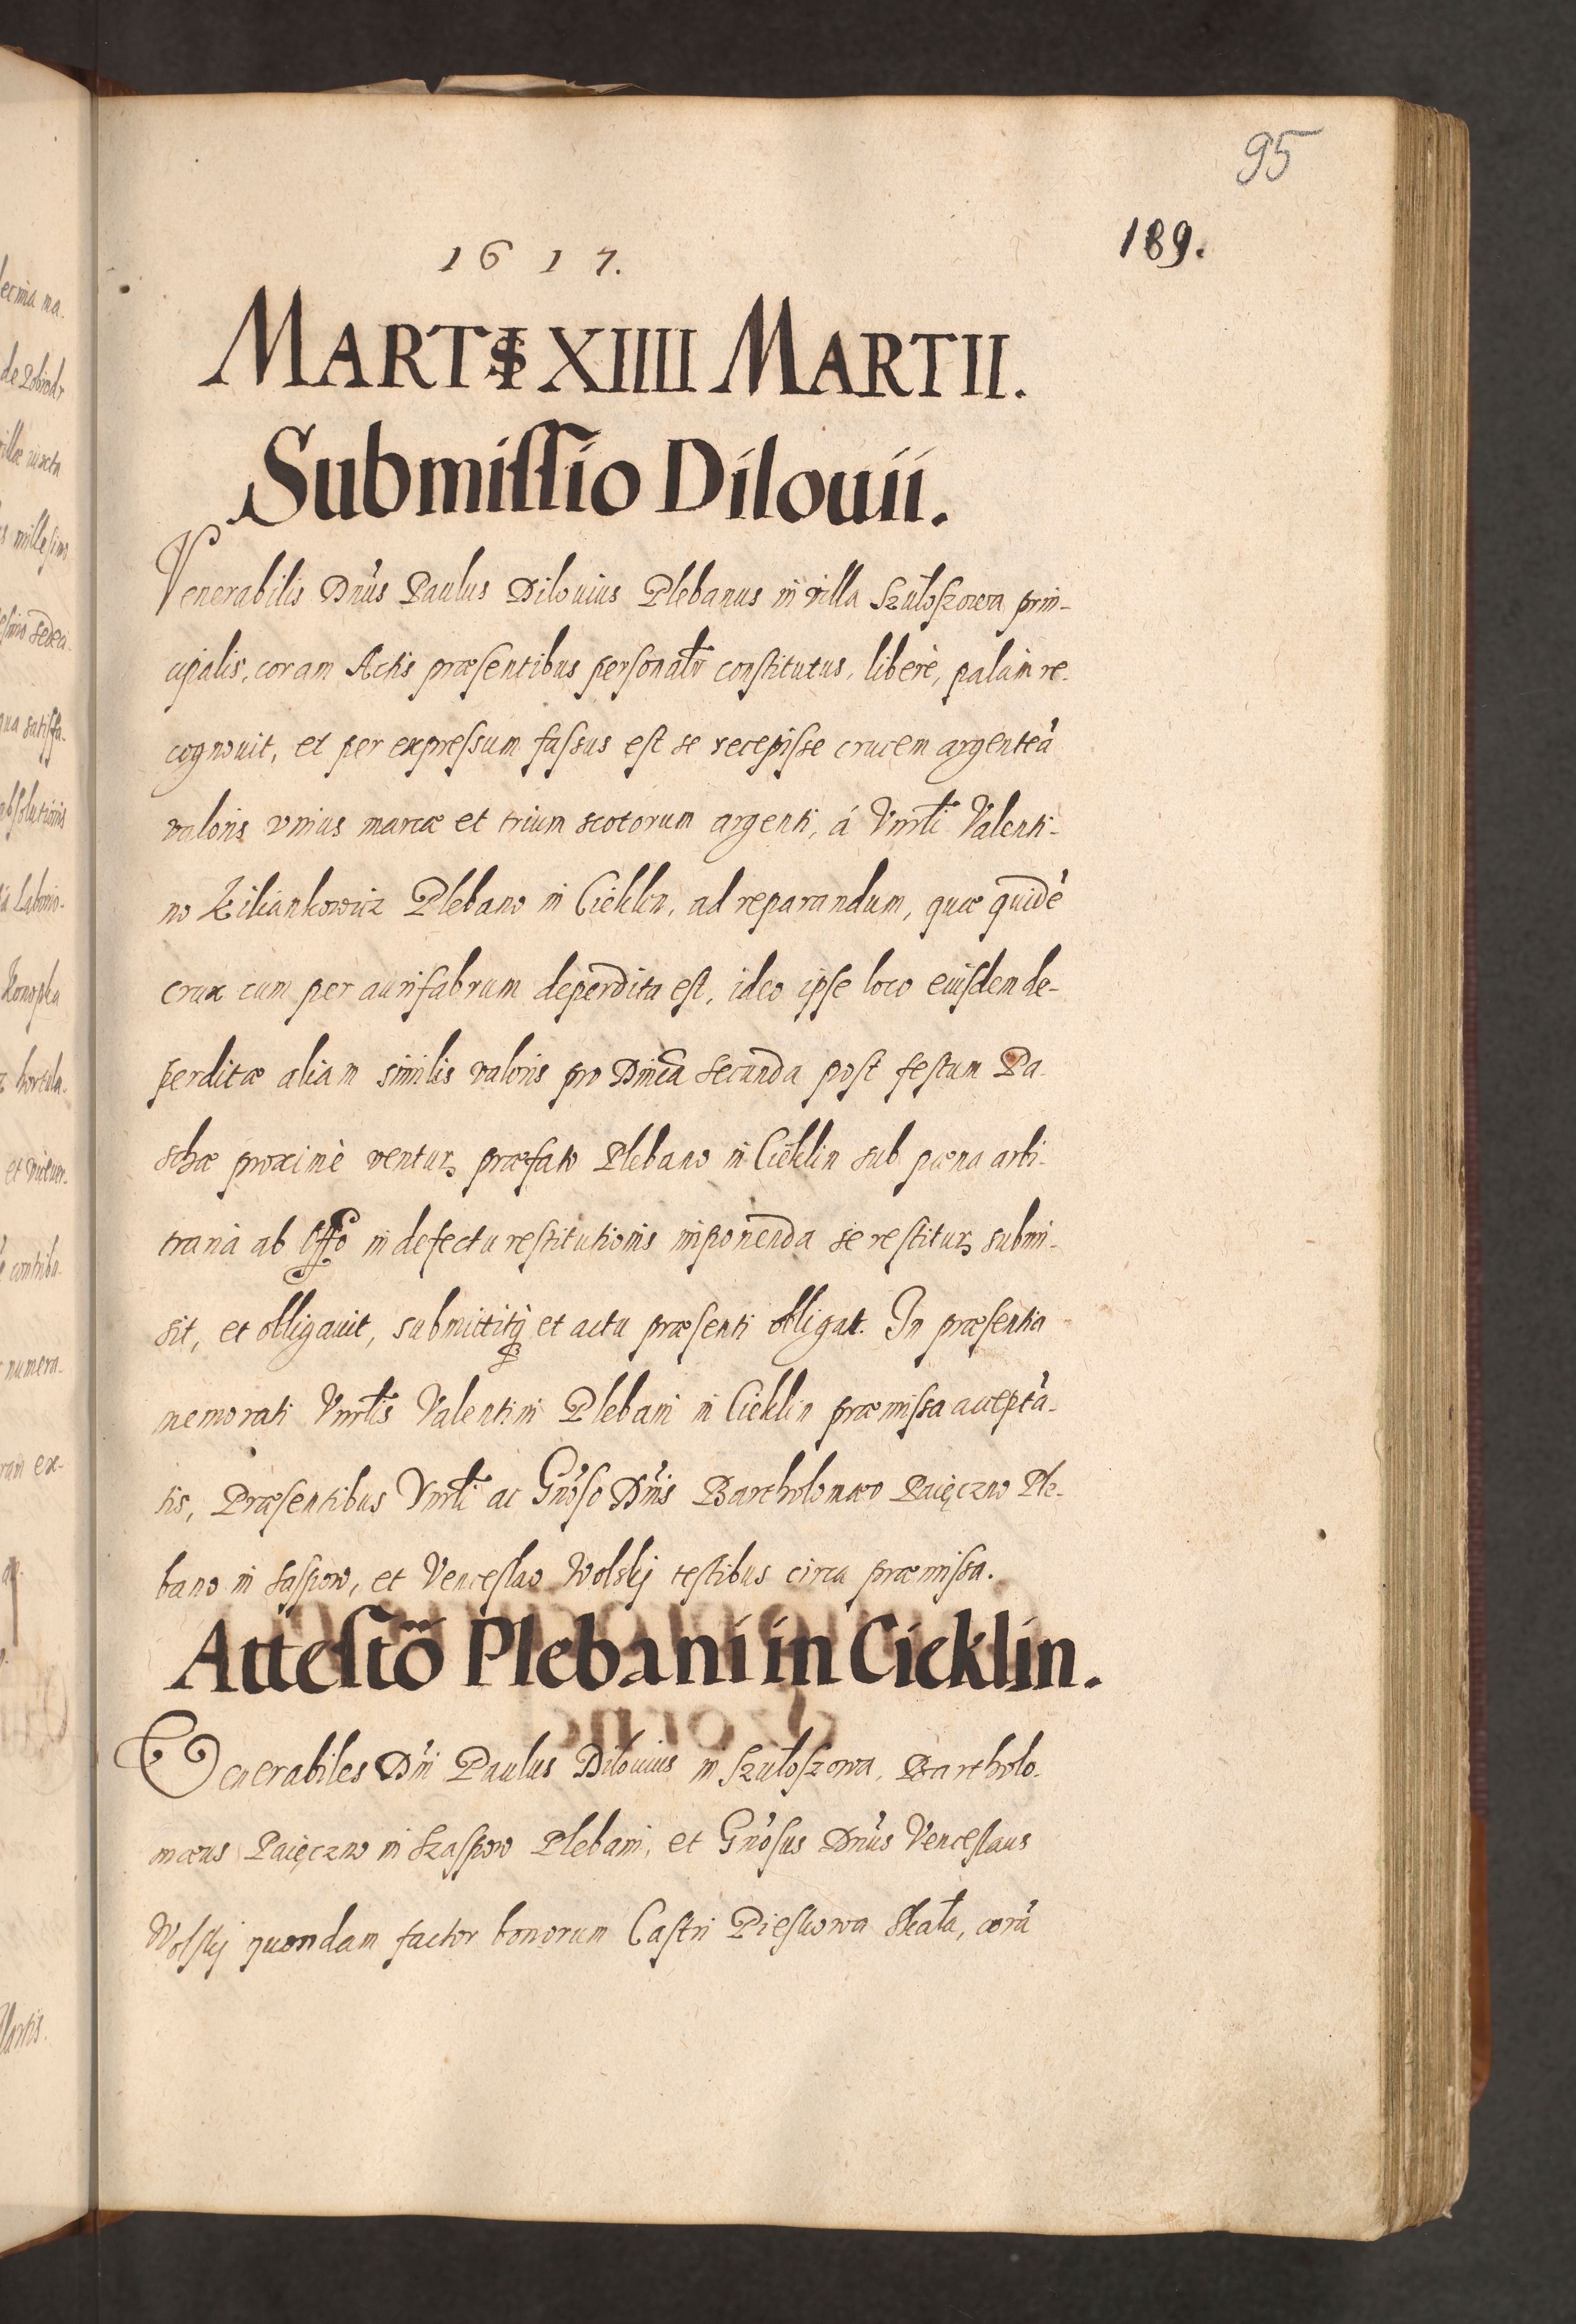 95
189.
1617.
MARTIS XIIII MARTII.
Submissio Dilouii.
Venerabilis Dn̄us Paulus Dilouius Plebanus in villa Szułoszowa prin-
cipalis, coram Actis præsentibus personal̄r constitutus, liberè, palàm re-
cognouit, et per expressum fassus est se recepisse crucem argenteā
valoris vnius marcæ et trium scotorum argenti, á Vnrl̄i Valenti-
no Kiliankowicz Plebano in Cieklin, ad reparandum, quæ quidē
crux cum per aurifabrum deperdita est, ideo ipse loco eiusdem de-
perditæ aliam similis valoris pro Dnīca secunda post festum Pa-
schæ proximè ventur, præfato Plebano in Cieklin sub pœna arbi-
traria ab Offō in defectu restitutionis imponenda se restitur, submi-
sit, et obligauit, submittitq̨ et actu præsenti obligat. In præsentia
memorati Vnrl̄is Valentini Plebani in Cieklin præmissa acceptā-
tis, Præsentibus Vnrl̄i ac Gn̄oso Dn̄is Bartholomæo Paięczno Ple-
bano in Saspow, et Venceslao Wolskj testibus circa præmissa.
Attestō Plebani in Cieklin.
Venerabiles Dn̄i Paulus Dilouius in Szułoszowa, Bartholo-
mæus Paięczno in Szaspow Plebani, et Gn̄osus Dn̄us Venceslaus
Wolskj quondam factor bonorum Castri Pieskowa Skała, corā